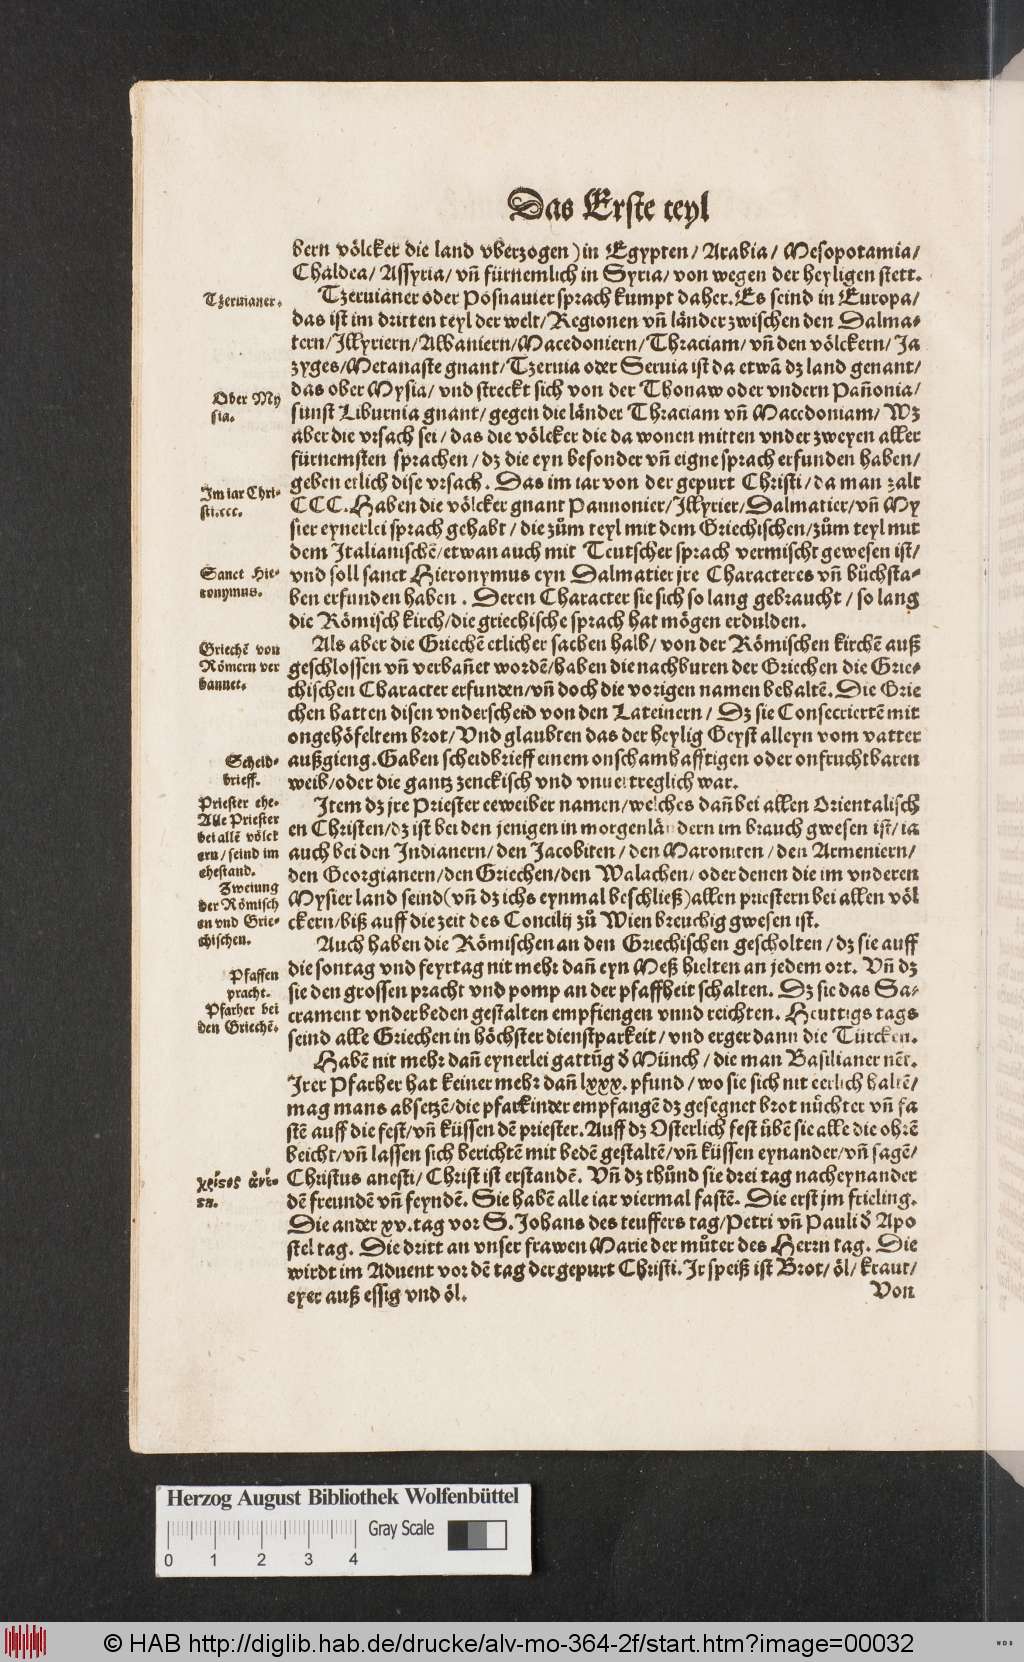 Das Erste teyl
bern völcker die land vberzogen) in Egypten/ Arabia/ Mesopotamia/
Chaldea/ Assyria/ vñ fürnemlich in Syria/ von wegen der heyligen stett.
Tzeruianer.
Tzeruianer oder Posnauier sprach kumpt daher. Es seind in Europa/
das ist im dritten teyl der welt/ Regionen vñ länder zwischen den Dalma-
tern/ Jllyriern/ Albaniern/ Macedoniern/ Thraciam/ vñ den völckern/ Ja
zyges/ Metanaste gnant/ Tzeruia oder Seruia ist da etwã dz land genant/
Ober My
sia.
das ober Mysia/ vnd streckt sich von der Thonaw oder vndern Pañonia/
sunst Liburnia gnant/ gegen die länder Thraciam vñ Macedoniam/ Wz
aber die vrsach sei/ das die völcker die da wonen mitten vnder zweyen aller
fürnemsten sprachen/ dz die eyn besonder vñ eigne sprach erfunden haben/
Jm iar Chri-
sti.ccc.
geben etlich dise vrsach. Das im iar von der gepurt Christi/ da man zalt
CCC. Haben die völcker gnant Pannonier/ Jllyrier/ Dalmatier/ vñ My
sier eynerlei sprach gehabt/ die zům teyl mit dem Griechischen/ zům teyl mit
dem Jtalianischẽ/ etwan auch mit Teutscher sprach vermischt gewesen ist/
Sanct Hie-
ronymus.
vnd soll sanct Hieronymus eyn Dalmatier jre Characteres vñ bůchsta-
ben erfunden haben. Deren Character sie sich so lang gebraucht/ so lang
die Römisch kirch/ die griechische sprach hat mögen erdulden.
Griechẽ von
Römern ver
bannet.
Als aber die Griechẽ etlicher sachen halb/ von der Römischen kirchẽ auß
geschlossen vñ verbañet wordẽ/ haben die nachburen der Griechen die Grie-
chischen Character erfunden/ vñ doch die vorigen namen behaltẽ. Die Grie
chen hatten disen vnderscheid von den Lateinern/ Dz sie Consecriertẽ mit
ongehöfeltem brot/ Vnd glaubten das der heylig Geyst alleyn vom vatter
Scheid-
brieff.
außgieng. Gaben scheidbrieff einem onschambafftigen oder onfruchtbaren
weib/ oder die gantz zenckisch vnd vnuertreglich war.
Priester ehe.
Alle Priester
bei allẽ völck
ern/ seind im
ehestand.
Jtem dz jre Priester eeweiber namen/ welches dañ bei allen Orientalisch
en Christen/ dz ist bei den jenigen in morgenländern im brauch gwesen ist/ ia
auch bei den Jndianern/ den Jacobiten/ den Maroniten/ den Armeniern/
den Georgianern/ den Griechen/ den Walachen/ oder denen die im vnderen
Zweiung
der Römisch
en vnd Grie-
chischen.
Mysier land seind (vñ dz ichs eynmal beschließ) allen priestern bei allen völ
ckern/ biß auff die zeit des Concilij zů Wien breuchig gwesen ist.
Auch haben die Römischen an den Griechischen gescholten/ dz sie auff
Pfaffen
pracht.
die sontag vnd feyrtag nit mehr dañ eyn Meß hielten an jedem ort. Vñ dz
sie den grossen pracht vnd pomp an der pfaffheit schalten. Dz sie das Sa-
Pfarher bei
den Griechẽ.
crament vnder beden gestalten empfiengen vnnd reichten. Heuttigs tags
seind alle Griechen in höchster dienstparkeit/ vnd erger dann die Türcken.
Habẽ nit mehr dañ eynerlei gattũg d Münch/ die man Basilianer nẽt.
Jrer Pfarher hat keiner mehr dañ lxxx. pfund/ wo sie sich nit eerlich haltẽ/
mag mans absetzẽ/ die pfarkinder empfangẽ dz gesegnet brot nůchter vñ fa
stẽ auff die fest/ vñ küssen dẽ priester. Auff dz Osterlich fest übẽ sie alle die ohrẽ
beicht/ vñ lassen sich berichtẽ mit bedẽ gestaltẽ/ vñ küssen eynander/ vñ sagẽ/
Christus anesti/ Christ ist erstandẽ. Vñ dz thůnd sie drei tag nacheynander
dẽ freundẽ vñ feyndẽ. Sie habẽ alle iar viermal fastẽ. Die erst jm frieling.
Die ander xv. tag vor S. Johans des teuffers tag/ Petri vñ Pauli d Apo
stel tag. Die dritt an vnser frawen Marie der můter des Herrn tag. Die
wirdt im Aduent vor dẽ tag der gepurt Christi. Jr speiß ist Brot/ öl/ kraut/
eyer auß essig vnd öl.
Von
Herzog August Bibliothek Wolfenbüttel
Gray Scale
0 1 2 3 4
© HAB http://diglib.hab.de/drucke/alv-mo-364-2f/start.htm?image=00032